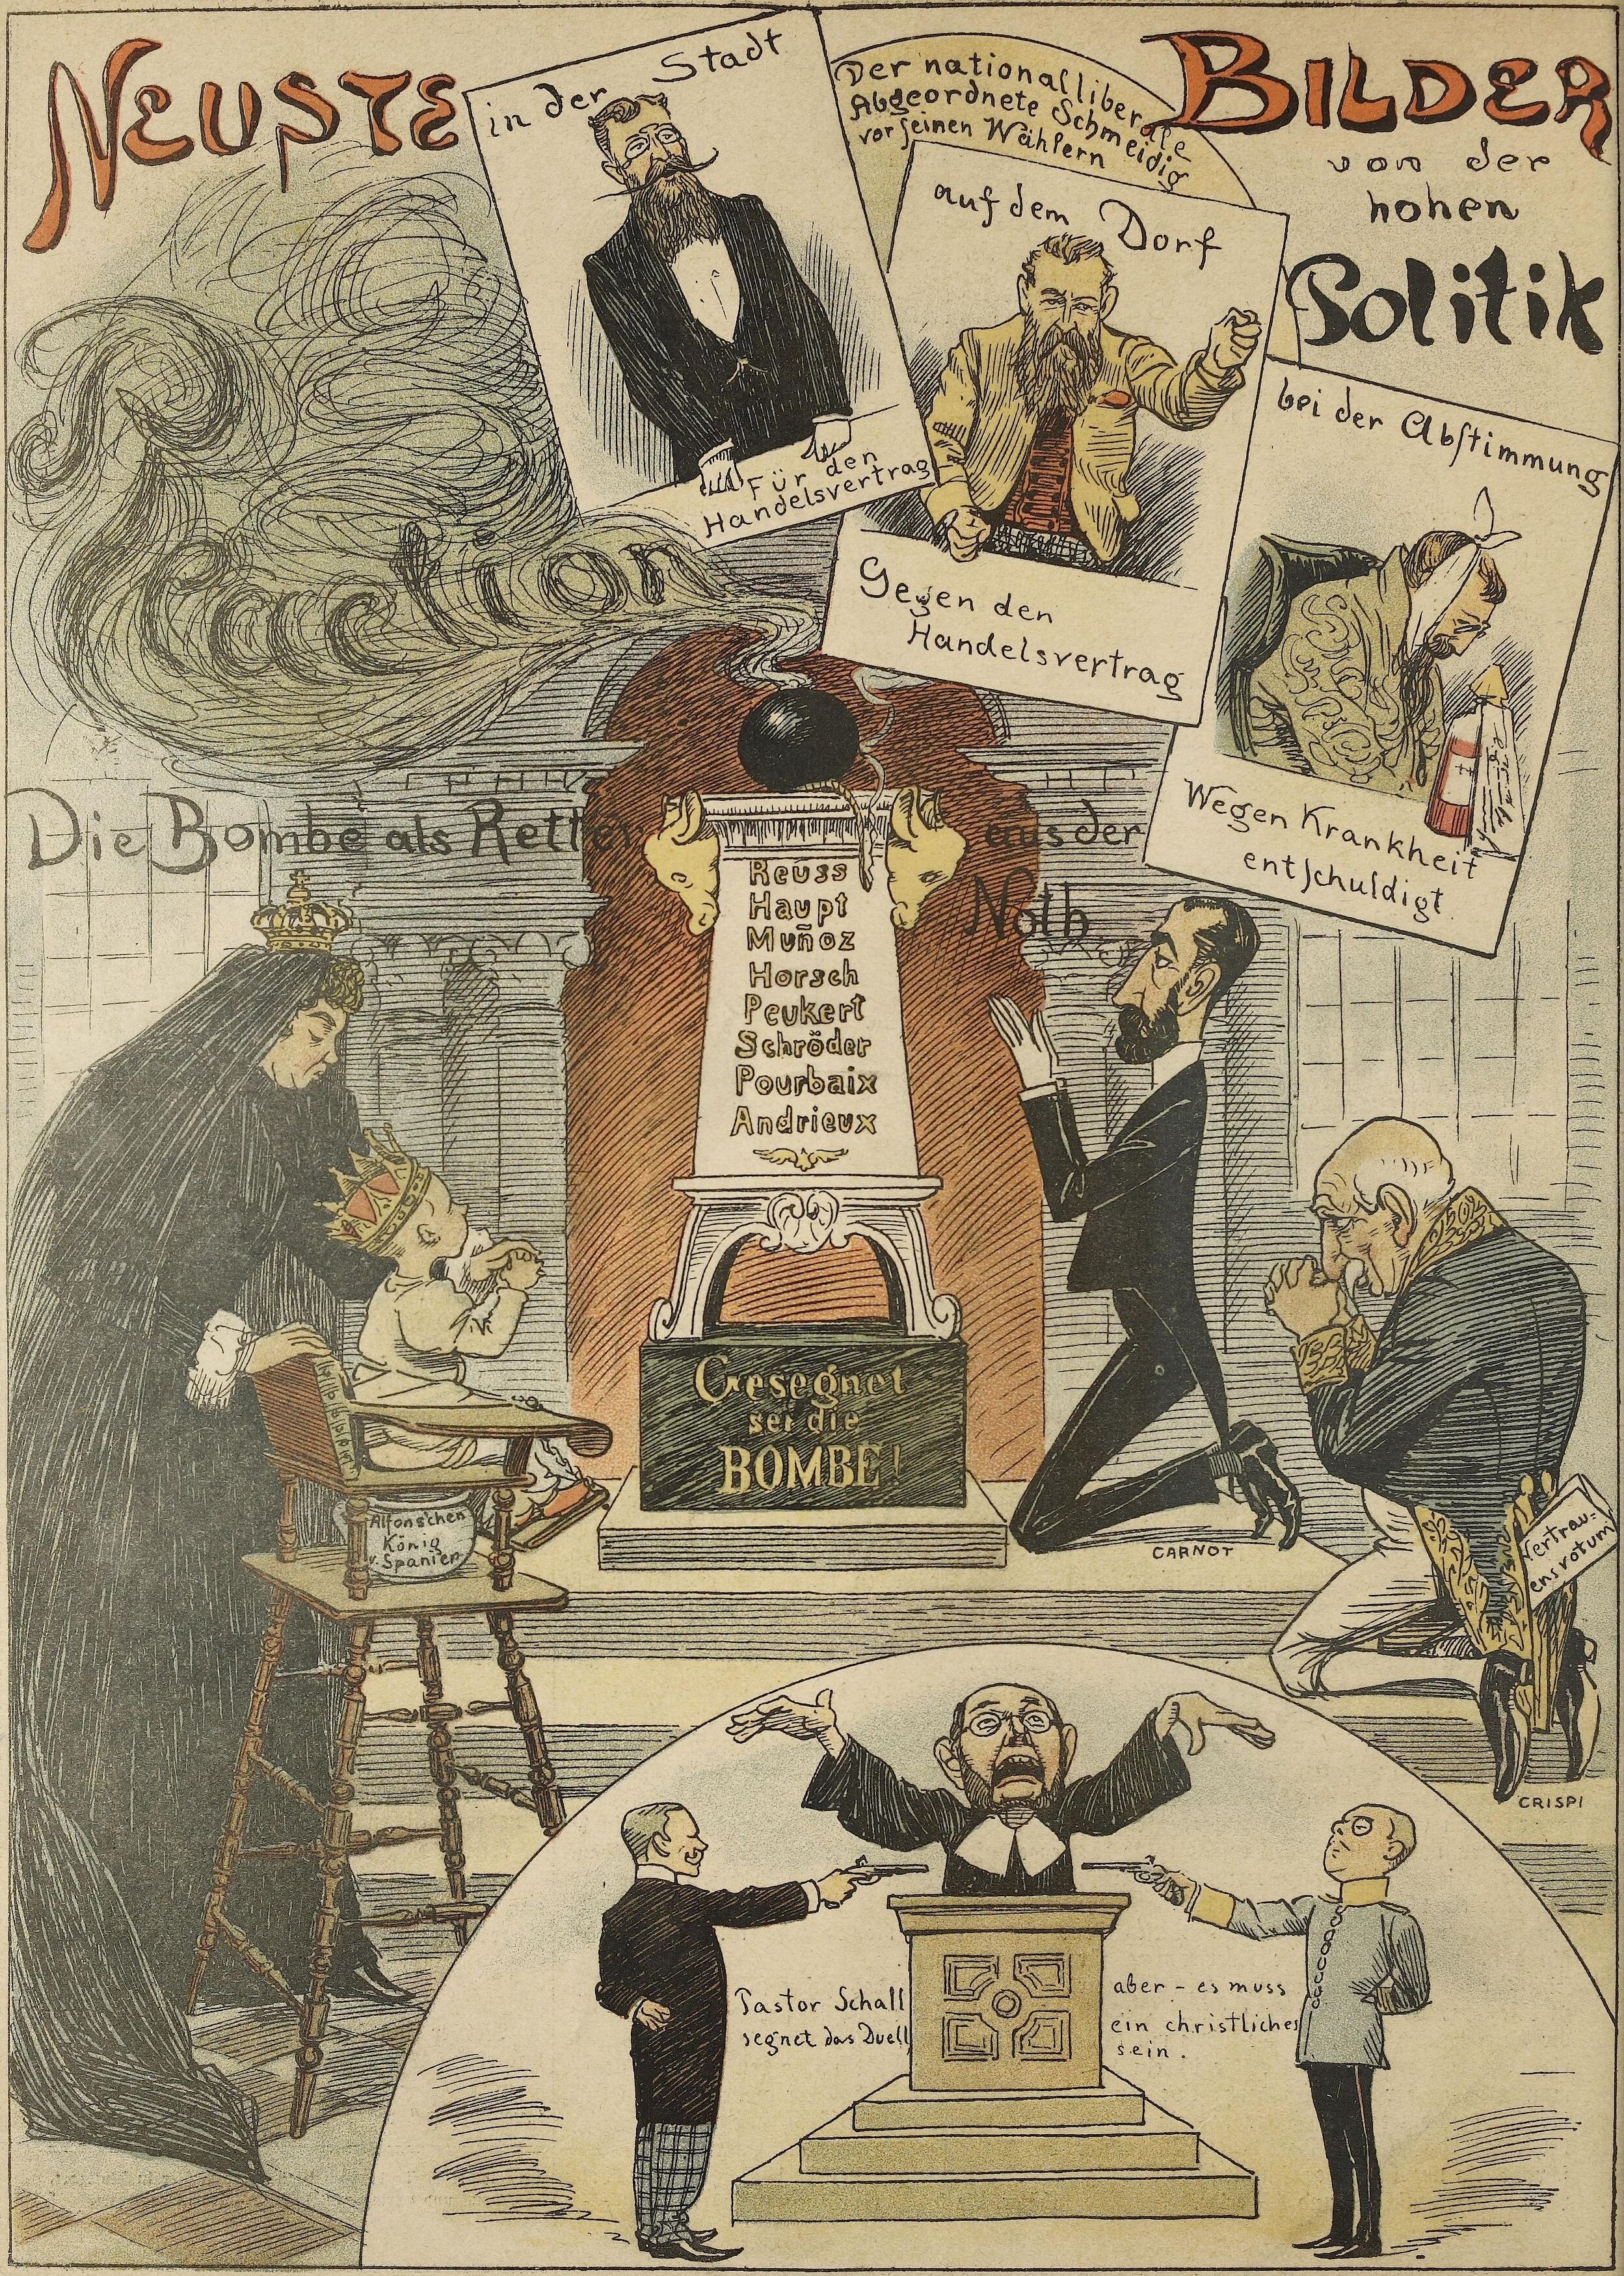 NEUSTE
BILDER
von der
hohen
Politik
Der nationalliberale
Abgeordnete Schmeidig
vor seinen Wählern
in der Stadt
Für den
Handelsvertrag
auf dem Dorf
Gegen den
Handelsvertrag
bei der Abstimmung
Wegen Krankheit
entschuldigt
Reaction
Die Bombe als Retter aus der
Noth
Reuss
Haupt
Muñoz
Horsch
Peukert
Schröder
Pourbaix
Andrieux
Gesegnet
sei die
BOMBE!
Alfonschen
König
v. Spanien
CARNOT
Vertrau-
ensvotum
CRISPI
Pastor Schall
segnet das Duell
aber - es muss
ein christliches
sein.